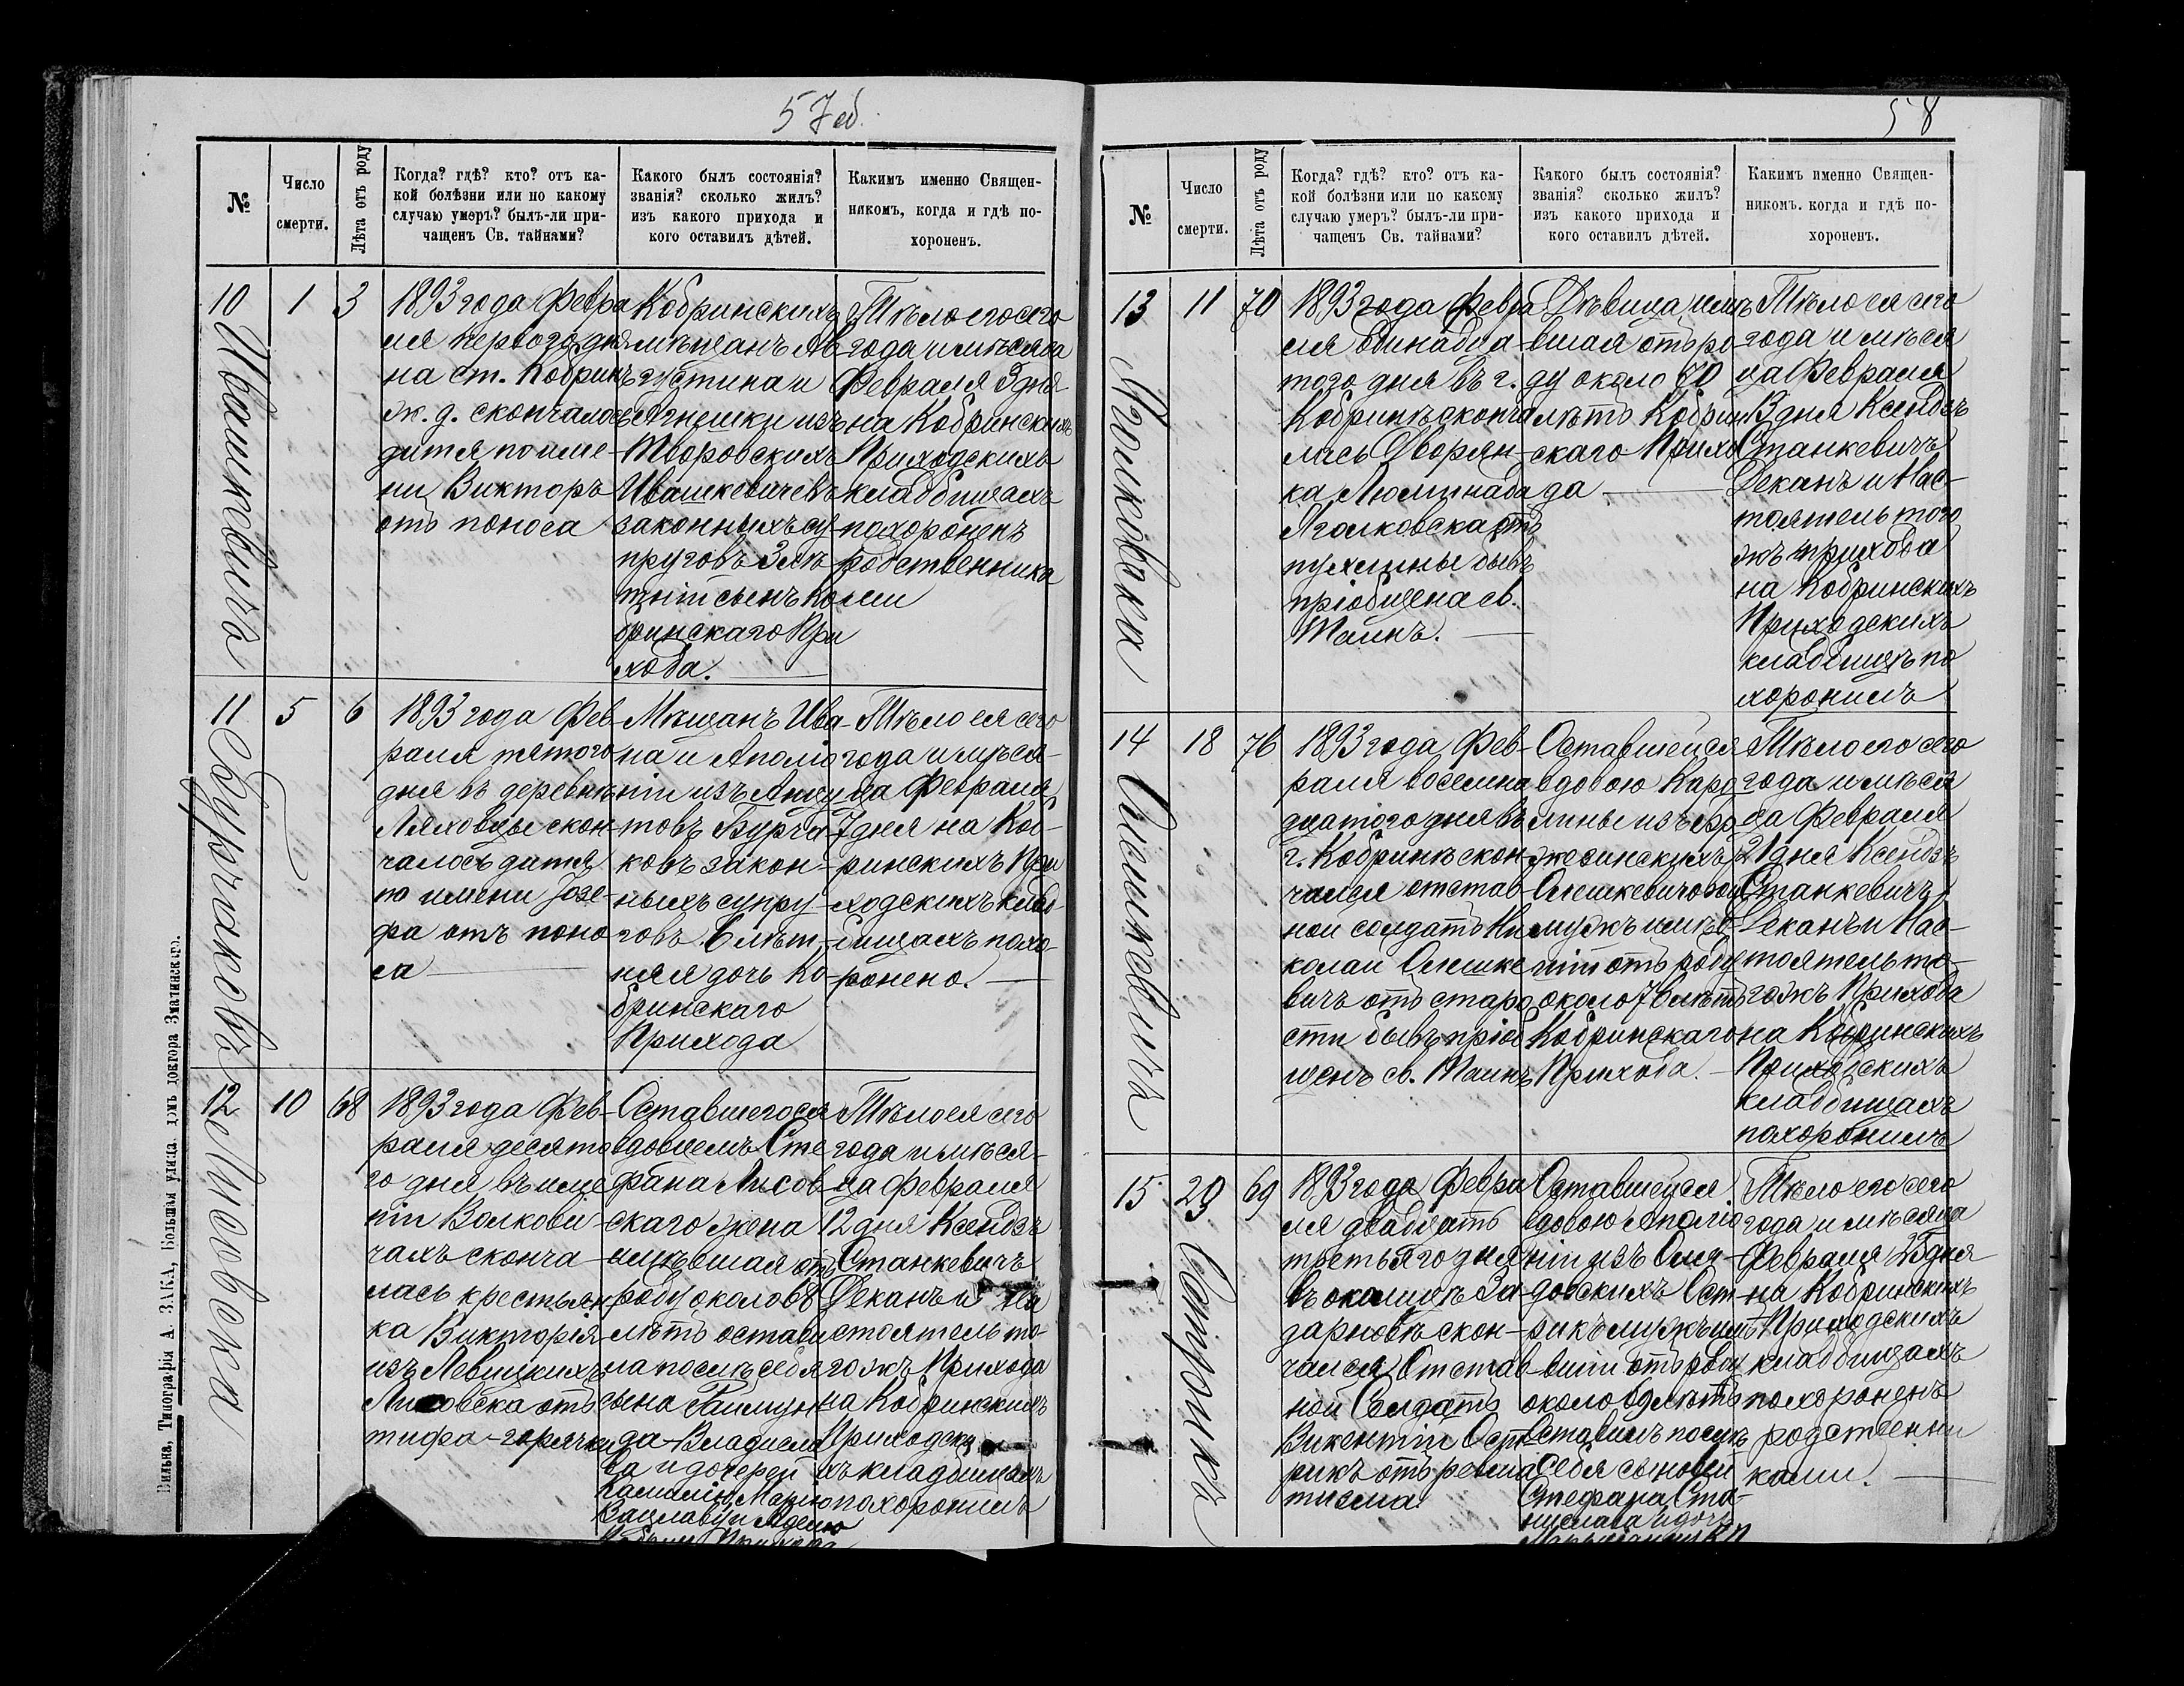 57об.
№
Число
смерти.
Лѣта отъ роду
Когда? гдѣ? кто? отъ ка-
кой болѣзни или по какому
случаю умеръ? былъ-ли при-
чащенъ Св. тайнами?
Какого былъ состоянія?
званія? сколько жилъ?
изъ какого прихода и
кого оставилъ дѣтей.
Какимъ именно Священ-
никомъ, когда и гдѣ по-
хороненъ.
10
Ивашкевичъ
1
3
1893 года Февра
ля перваго дня
на ст. Кобринъ
ж. д. скончалось
дитя по име-
ни Викторъ
отъ поноса
Кобринскихъ
мѣщанъ Ав
густина и
Агнешки изъ
Творовскихъ
Ивашкевичевъ
законныхъ су-
пруговъ 3 лѣ
тній сынъ Ко
бринскаго При
хода.
Тѣло его сего
года и мѣсяца
Февраля 3 дня
на Кобринскихъ
Приходскихъ
кладбищахъ
похороненъ
родственника
ми
11
Бурчаковъ
5
6
1893 года Фев-
раля пятого
дня въ деревнѣ
Ляховцы скон-
чалось дитя
по имени Іозе-
фа отъ поно
са
Мѣщанъ Ива-
на и Аполо
ніи изъ
Бурча-
ковъ закон-
ныхъ супру-
говъ 6 лѣт-
няя дочь Ко-
бринскаго
Прихода
Тѣло ея сего
года и мѣся-
ца Февраля
7 дня на Коб-
ринскихъ При
ходскихъ клад-
бищахъ похо-
ронено.
12
Лисовска
10
68
1893 года Фев-
раля десято
го дня въ имѣ
ніи Волкови-
чахъ сконча-
лась крестьян
ка Викторія
изъ Левицкихъ
Лисовска отъ
тифа-горячки
Оставшегося
вдовцемъ Сте
фана Лисов-
скаго жена
имѣвшая отъ
роду около 68
лѣтъ остави
ла послѣ себя
сына Раймун
да-Владисла
ва и дочерей
Марію
Вацлаву и Аделю
Прихода
Тѣло ея сего
года и мѣся-
ца Февраля
12 дня Ксендзъ
Станкевичъ
Деканъ и На
стоятель то-
го жъ Прихода
на Кобринскихъ
Приходски
хъ кладбищахъ
похоронилъ
Вильна, Типографія А. ЗАКА, Большая улица, домъ доктора Зматнаскаго.
58
№
Число
смерти.
Лѣта отъ роду
Когда? гдѣ? кто? отъ ка-
кой болѣзни или по какому
случаю умеръ? былъ-ли при-
чащенъ Св. тайнами?
Какого былъ состоянія?
званія? сколько жилъ?
изъ какого прихода и
кого оставилъ дѣтей.
Какимъ именно Священ-
никомъ. когда и гдѣ по-
хороненъ.
13
11
70
1893 года Февра
ля одинадца-
того дня въ г.
Кобринѣ сконча
лась Дворян-
ка
отъ
пухлины бывъ
пріобщена св.
Таинъ.
Дѣвица имѣ
вшая отъ ро
ду около 70
лѣтъ Кобрин
скаго Прихо
да
Тѣло ея сего
года и мѣся
ца Февраля
13 дня Ксендзъ
Станкевичъ
Деканъ и Нас-
тоятель того
жъ прихода
на Кобринскихъ
Приходскихъ
кладбищъ по
хоронилъ
14
Олешкевичъ
18
76
1893 года Фев-
раля восемна
дцатого дня въ
г. Кобринѣ скон-
чался отстав-
ной солдатъ Ни
колай Олешке
вичъ отъ старо
сти бывъ пріоб
щенъ св. Таинъ
Оставшейся
вдовою Каро
лины изъ
Олешкевичовой
мужъ имѣв
шій отъ роду
около 76 лѣтъ
Кобринскаго
Прихода.
Тѣло его сего
года и мѣся
ца Февраля
21 дня Ксендзъ
Станкевичъ
Деканъ и Нас-
тоятель то-
го жъ Прихода
на Кобринскихъ
Приходскихъ
кладбищахъ
похоронилъ
15
Остриkъ
23
69
1893 года Февра
ля двадцать
третьяго дня
въ околицѣ За-
дарновѣ скон-
чался Отстав-
ной Солдатъ
Викентій Ост-
рикъ отъ ревма
тизма
Оставшейся
вдовою Аполо
ніи изъ
Ост-
рикъ мужъ имѣ-
вшій отъ роду
около 69 лѣтъ
оставилъ послѣ
себя сыновей
Стефана Ста-
нислава и дочь
Тѣло его сего
года и мѣсяца
Февраля 25 дня
на Кобринскихъ
Приходскихъ
кладбищахъ
похороненъ
родственни
ками.